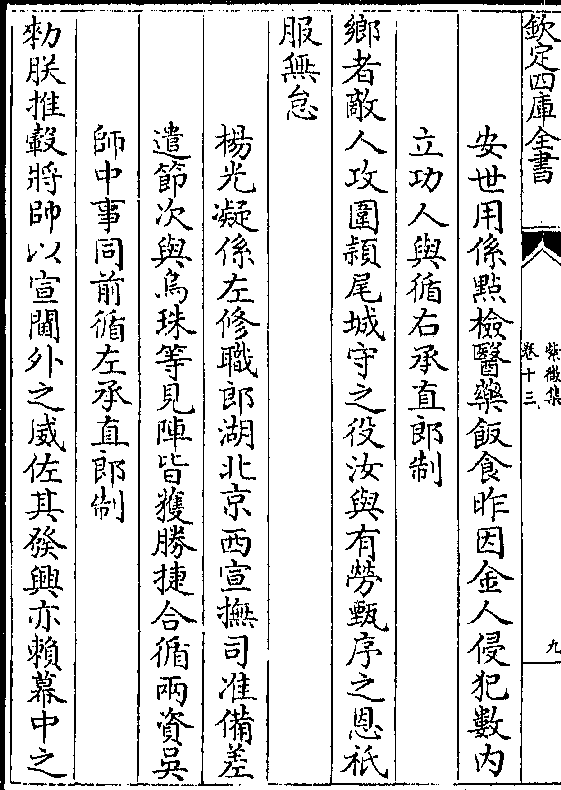 欽定四庫全書
紫微集
卷十三
九
安世用係㸃檢醫藥飯食昨因金人侵犯數内
立功人與循右承直郎制
鄉者敵人攻圍頴尾城守之役汝與有勞甄序之恩祗
服無怠
楊光凝係左修職郎湖北京西宣撫司准備差
遣節次與烏珠等見陣皆獲勝捷合循兩資吳
師中事同前循左承直郎制
勑朕推轂將帥以宣閫外之威佐其發興亦賴幕中之